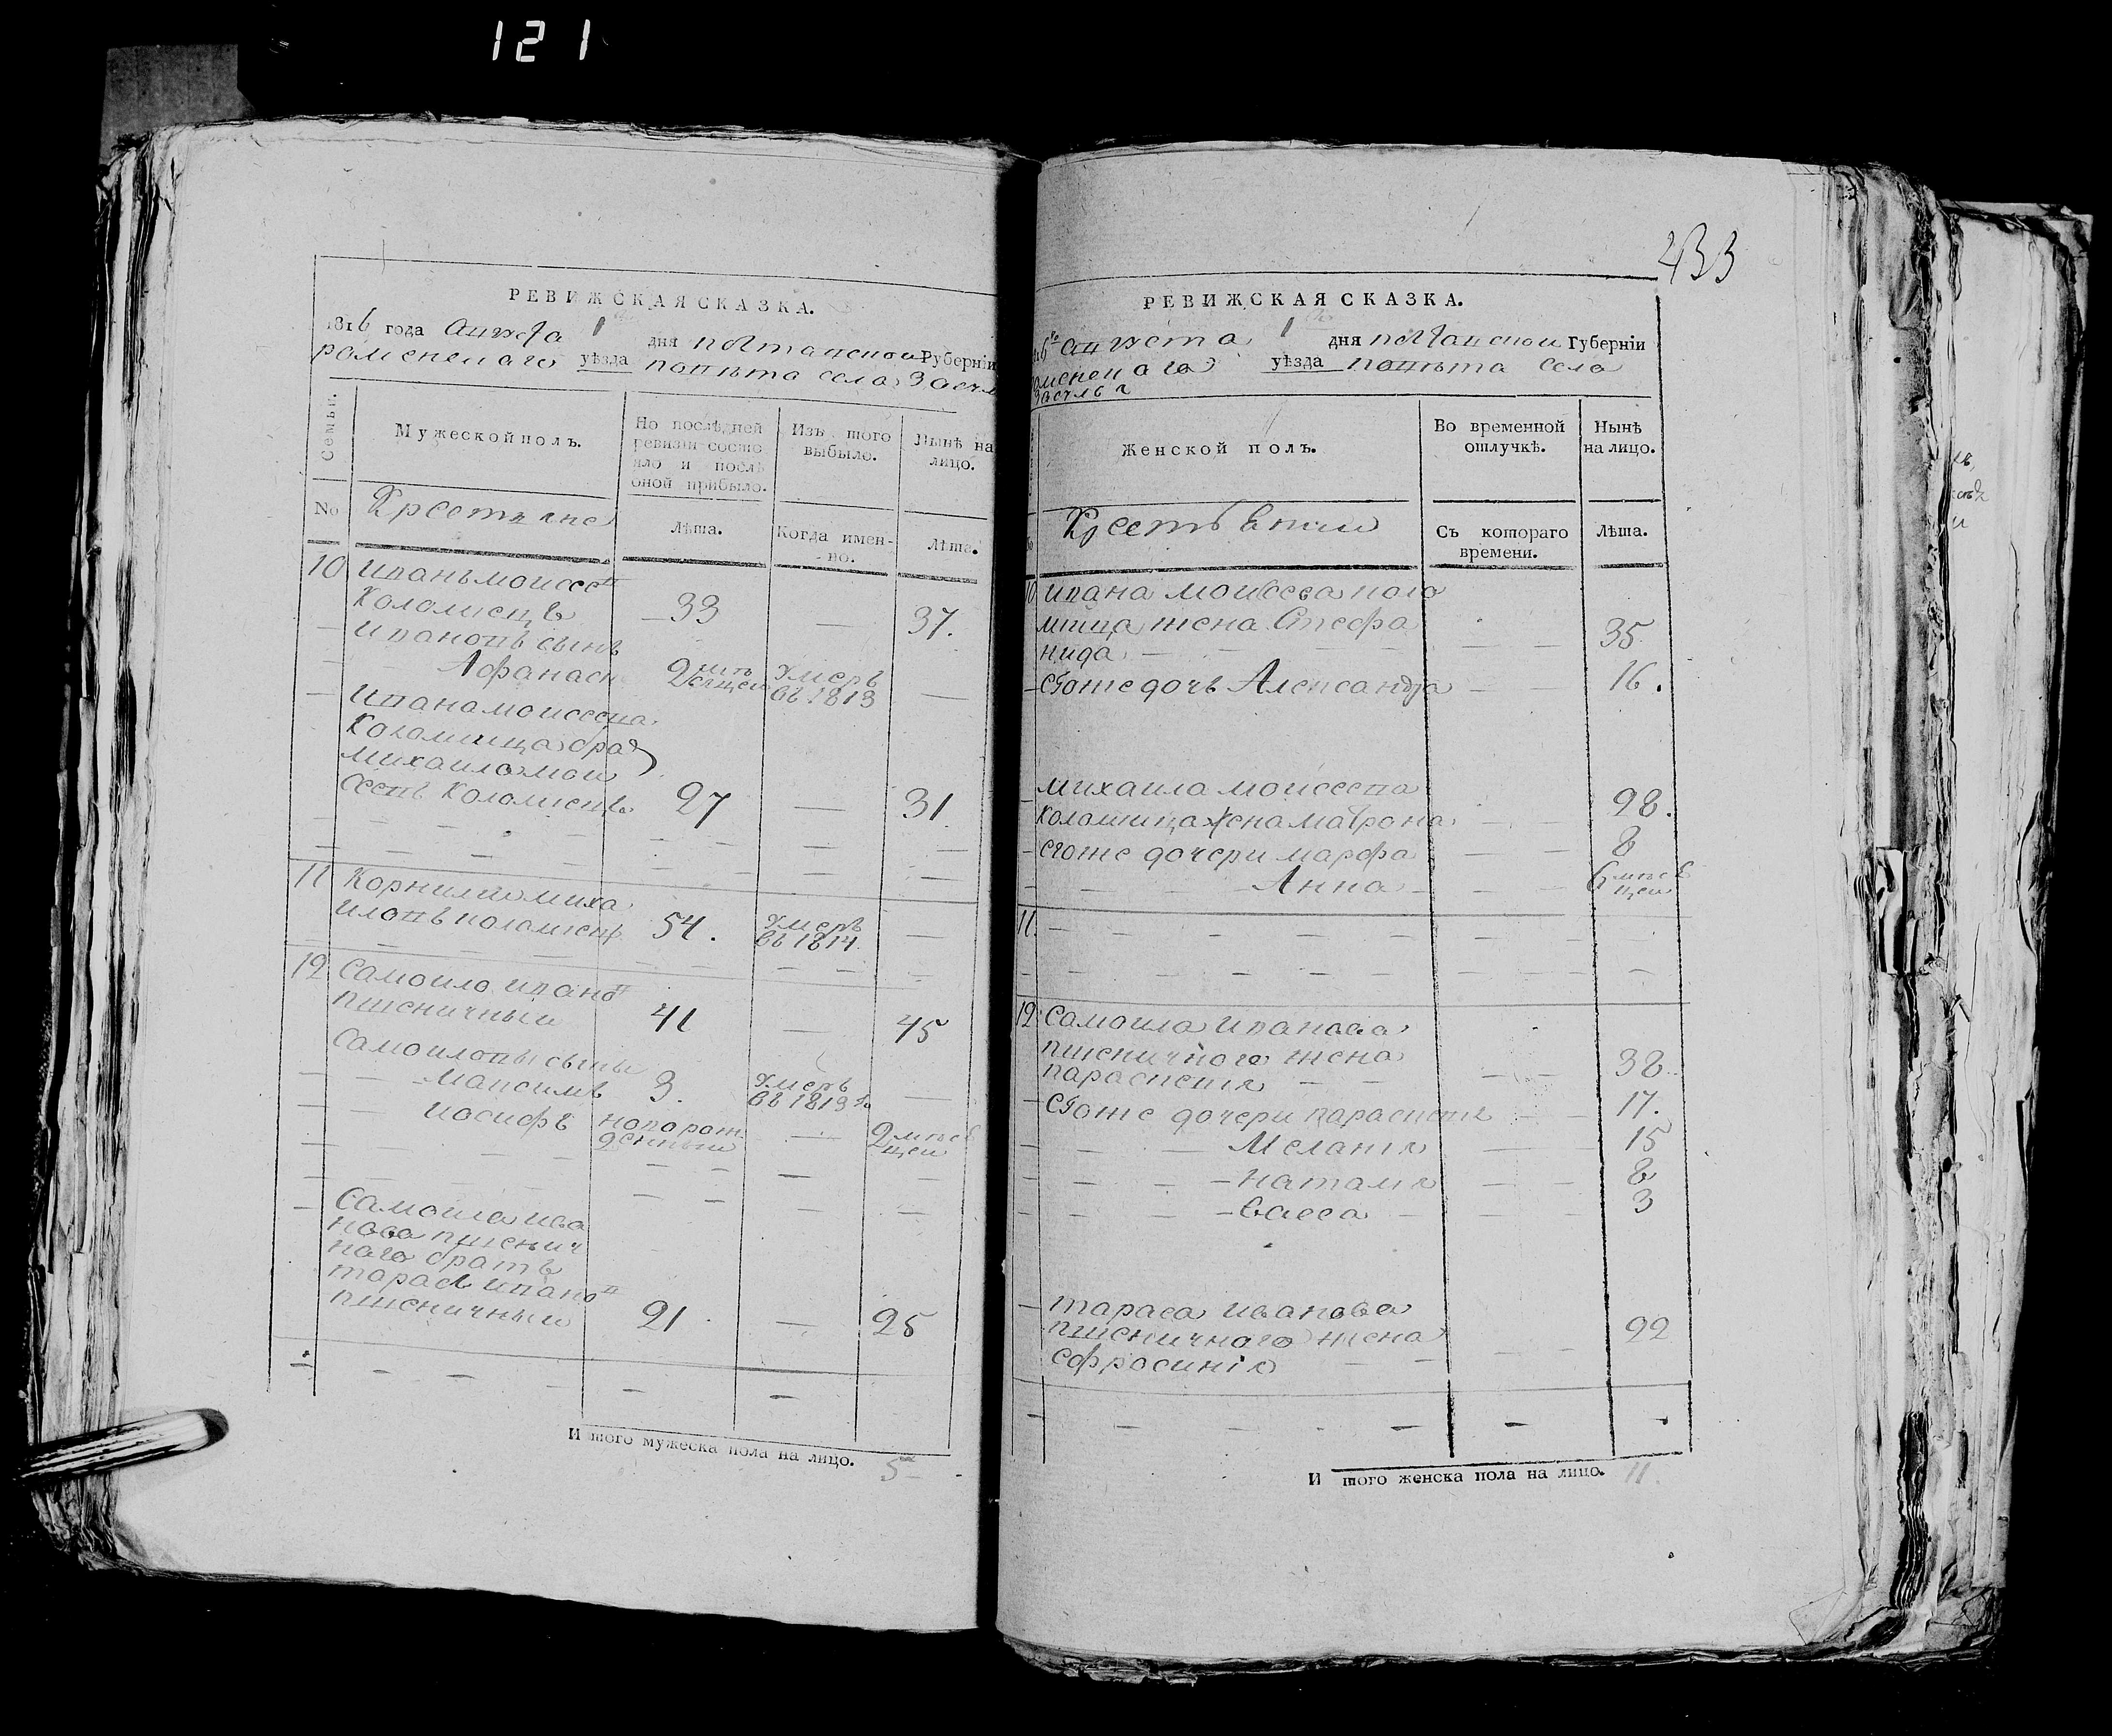 121
433
РЕВИЖСКАЯ СКАЗКА.
1816 года Августа 1 дня полтавской Губерніи
роменскаго уѣзда повѣта села Засуль
Семьи.
Мужеской полъ.
По послѣдней
ревизіи состо
яло и послѣ
оной прибыло.
Изъ того
выбыло.
Нынѣ на
лицо.
No
Крестяне
Лѣта.
Когда имен-
но.
Лѣта.
10 Иванъ моисеев
Коломиецъ 33 — 37.
— Ивановъ сынъ
Афанаси 2 месяцей умеръ въ 1813 —
— Ивана моисеева
Коломийца брат
михаило мои
сеевъ Коломиецъ 27 — 31
11 Корнилио миха
иловъ коломиец 54. умеръ въ 1814. —
12 Самоило ивановъ
пшеничный 41 — 45
Самоиловы сыны
— максимъ 3. умеръ въ 1813 —
— иосифъ новорож денный — 2 месецеи
— Самоила ива
нова пшенич
наго братъ
тарасъ ивановъ
пшеничный 21 — 25
И того мужеска пола на лицо. 5
РЕВИЖСКАЯ СКАЗКА.
Августа 1 дня полтавскои Губерніи
роменскаго уѣзда повѣта села
Засулья
Женской полъ.
Во временной
отлучкѣ.
Нынѣ
на лицо.
Крестьянки
Съ котораго
времени.
Лѣта.
10 ивана моисеева коло
мийца жена Стефа
нида — — 35
— егоже дочь Александра — — 16.
— михаила моисеева
коломийца жена матрона — 28.
— егоже дочери марфа — — 8
Анна — 6 месецеи
11. —
12 Самоила иванова
пшеничного жена
параскевия — — 38
— егоже дочери параскевия — 17.
— Меланія — 15
— наталия — 8
— васса — 3
— тараса иванова
пшеничного жена
ефросинія — — 22
И того женска пола на лицо. 11.